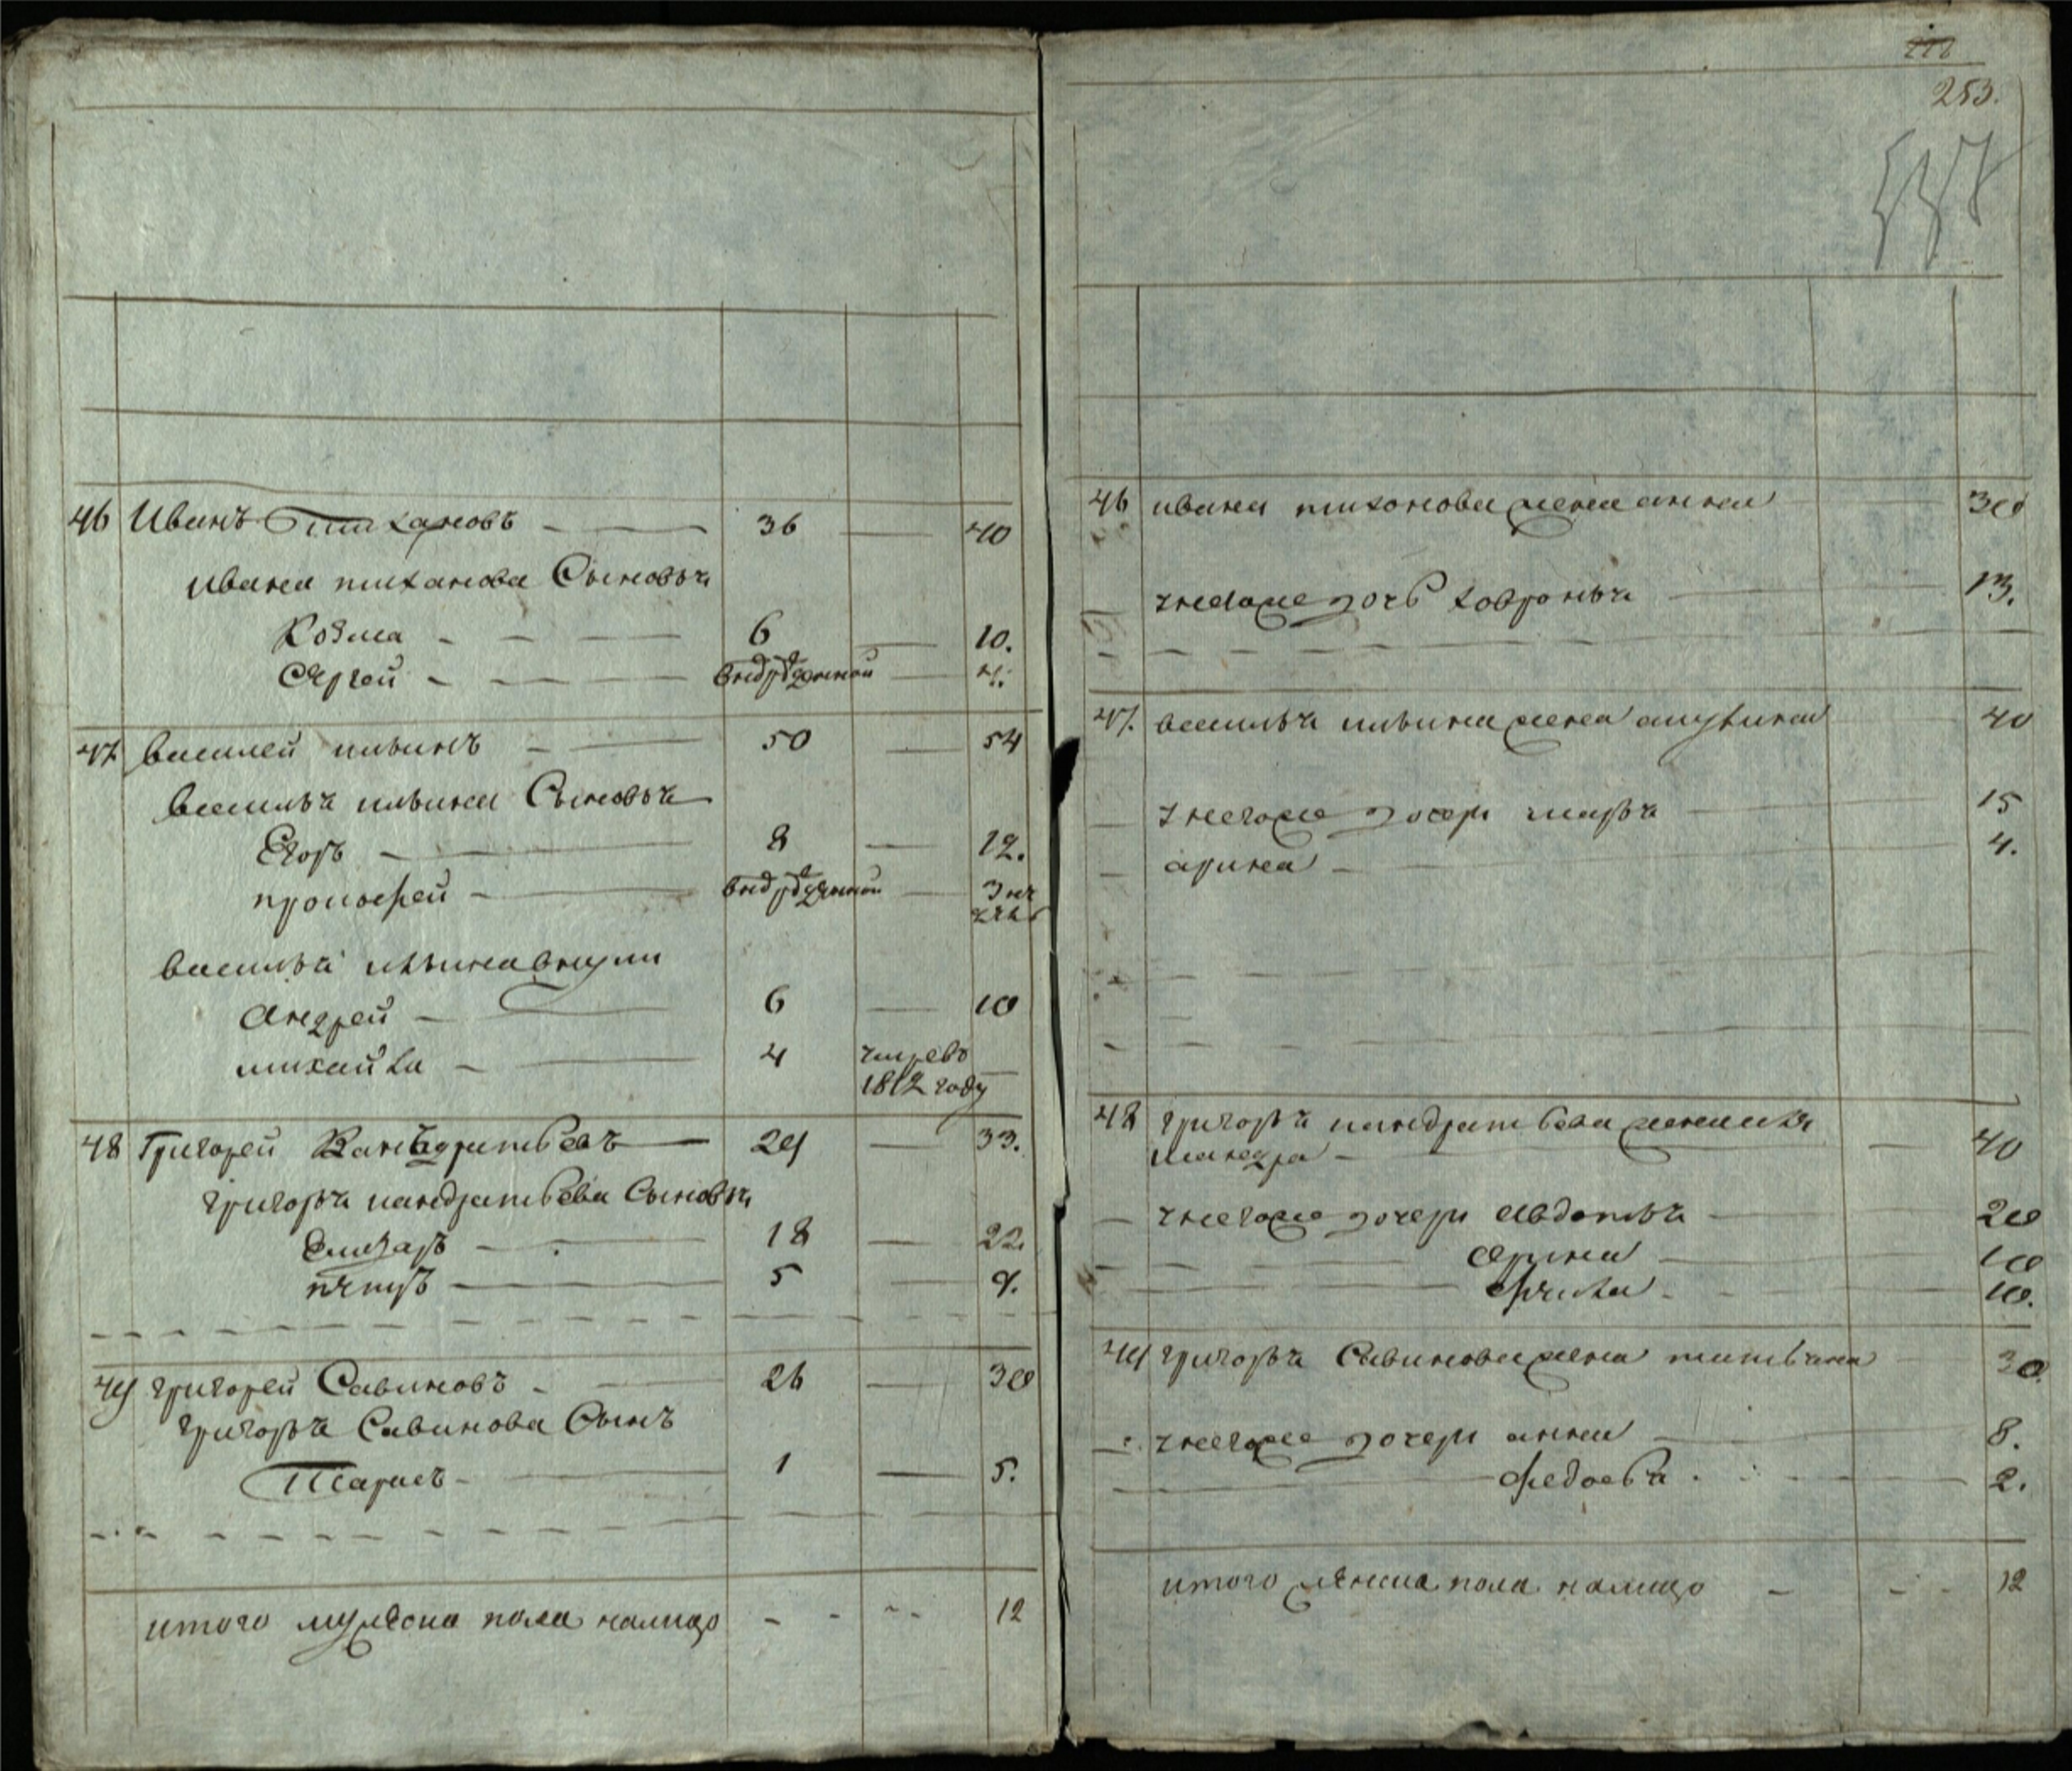 46 Иванъ Тихановъ 36 40
Ивана тиханова Сыновья
Козма 6 10.
Сергей 4.
47 василей ильинъ 50 54
василья ильина Сыновья
Егоръ 8 12.
прокофей 3
василья ильина внуки
Андрей 6 10
михайла 4 умре въ
1812 году
48 Григорей Кандратьевъ 29 33.
григорья кандратьева Сыновья
Елизаръ 18 22.
петръ 5 9.
49 григорей Савиновъ 26 30
григорья Савинова Сынъ
Тарасъ 1 5.
итого мужеска пола налицо 12
253.
46 ивана тихонова жена анна 30
унегоже дочь ховронья 13.
47. василья ильина жена 40
унегоже дочери марья 15
арина 4.
48 григорья кандратьева жена
40
унегоже дочери Авдотья 20
Арина 10
Фекла 10.
49 григорья Савинова жена татьяна 30.
унегоже дочери анна 8.
Федосья 2.
итого женска пола налицо 12